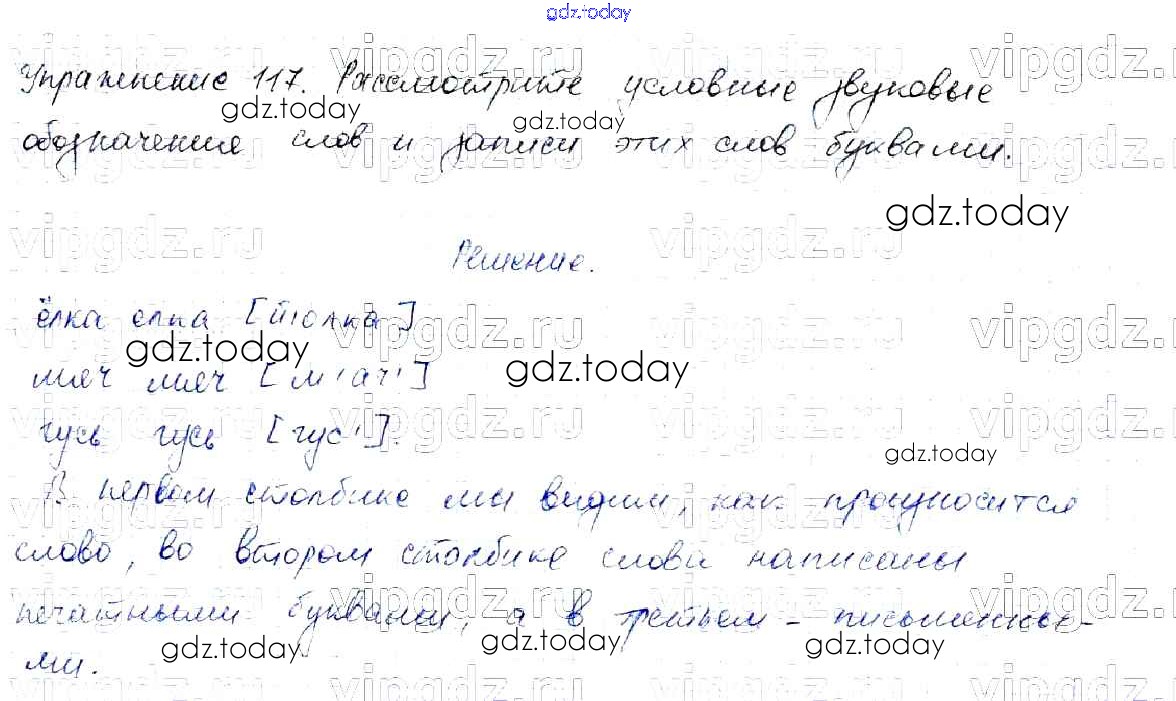 gdz.today
Упражнение 117. Рассмотрите условные звуковые
обозначения слов и записи этих слов буквами.
Решение.
ёлка елка [й'олка]
мяч мяч [м'ач']
гусь гусь [гус'].
В первом столбике мы видим, как произносится
слово, во втором столбике слова написаны
печатными буквами, а в третьем - письменны-
ми.